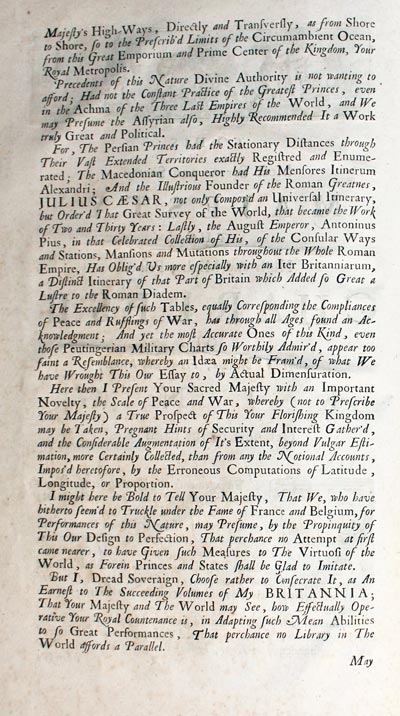 Majeſty's High-Ways, Directly and Tranſverſly, as from Shore
to Shore, ſo to the Preſcrib'd Limits of the Circumambient Ocean,
from this Great Emporium and Prime Center of the Kingdom, Your
Royal Metropolis.
Precedents of this Nature Divine Authority is not wanting to
afford; Had not the Conſtant Practice of the Greateſt Princes, even
in the Achma of the Three Laſt Empires of the World, and We
may Preſume the Aſſyrian alſo, Highly Recommended It a Work
truly Great and Political.
For, The Perſian Princes had the Stationary Diſtances through
Their Vaſt Extended Territories exactly Regiſtred and Enume-
rated; The Macedonian Conqueror had His Menſores Itinerum
Alexandri; And the Illuſtrious Founder of the Roman Greatnes,
JULIUS CÆSAR, not only Compos'd an Univerſal Itinerary,
but Order'd That Great Survey of the World, that became the Work
of Two and Thirty Years: Laſtly, the Auguſt Emperor, Antoninus
Pius, in that Celebrated Collection of His, of the Conſular Ways
and Stations, Manſions and Mutations throughout the Whole Roman
Empire, Has Oblig'd Us more eſpecially with an Iter Britanniarum,
a Diſtinct Itinerary of that Part of Britain which Added ſo Great a
Luſtre to the Roman Diadem.
The Excellency of ſuch Tables, equally Correſponding the Compliances
of Peace and Ruffſtings of War, has through all Ages found an Ac-
knowledgment; And yet the moſt Accurate Ones of this Kind, even
thoſe Peutingerian Military Charts ſo Worthily Admir'd, appear too
faint a Reſemblance, whereby an Idæa might be Fram'd, of what We
have Wrought This Our Eſſay to, by Actual Dimenſuration.
Here then I Preſent Your Sacred Majeſty with an Important
Novelty, the Scale of Peace and War, whereby (not to Preſcribe
Your Majeſty) a True Proſpect of This Your Floriſhing Kingdom
may be Taken, Pregnant Hints of Security and Intereſt Gather'd,
and the Conſiderable Augmentation of It's Extent, beyond Vulgar Eſti-
mation, more Certainly Collected, than from any the Notional Accounts,
Impos'd heretofore, by the Erroneous Computations of Latitude,
Longitude, or Proportion.
I might here be Bold to Tell Your Majeſty, That We, who have
hitherto ſeem'd to Truckle under the Fame of France and Belgium, for
Performances of this Nature, may Preſume, by the Propinquity of
This Our Deſign to Perfection, That perchance no Attempt at firſt
came nearer, to have Given ſuch Meaſures to The Virtuoſi of the
World, as Forein Princes and States ſhall be Glad to Imitate.
But I, Dread Soveraign, Chooſe rather to Conſecrate It, as An
Earneſt to The Succeeding Volumes of My BRITANNIA;
That Your Majeſty and The World may See, how Effectually Ope-
rative Your Royal Countenance is, in Adapting ſuch Mean Abilities
to ſo Great Performances, That perchance no Library in The
World affords a Parallel.
May